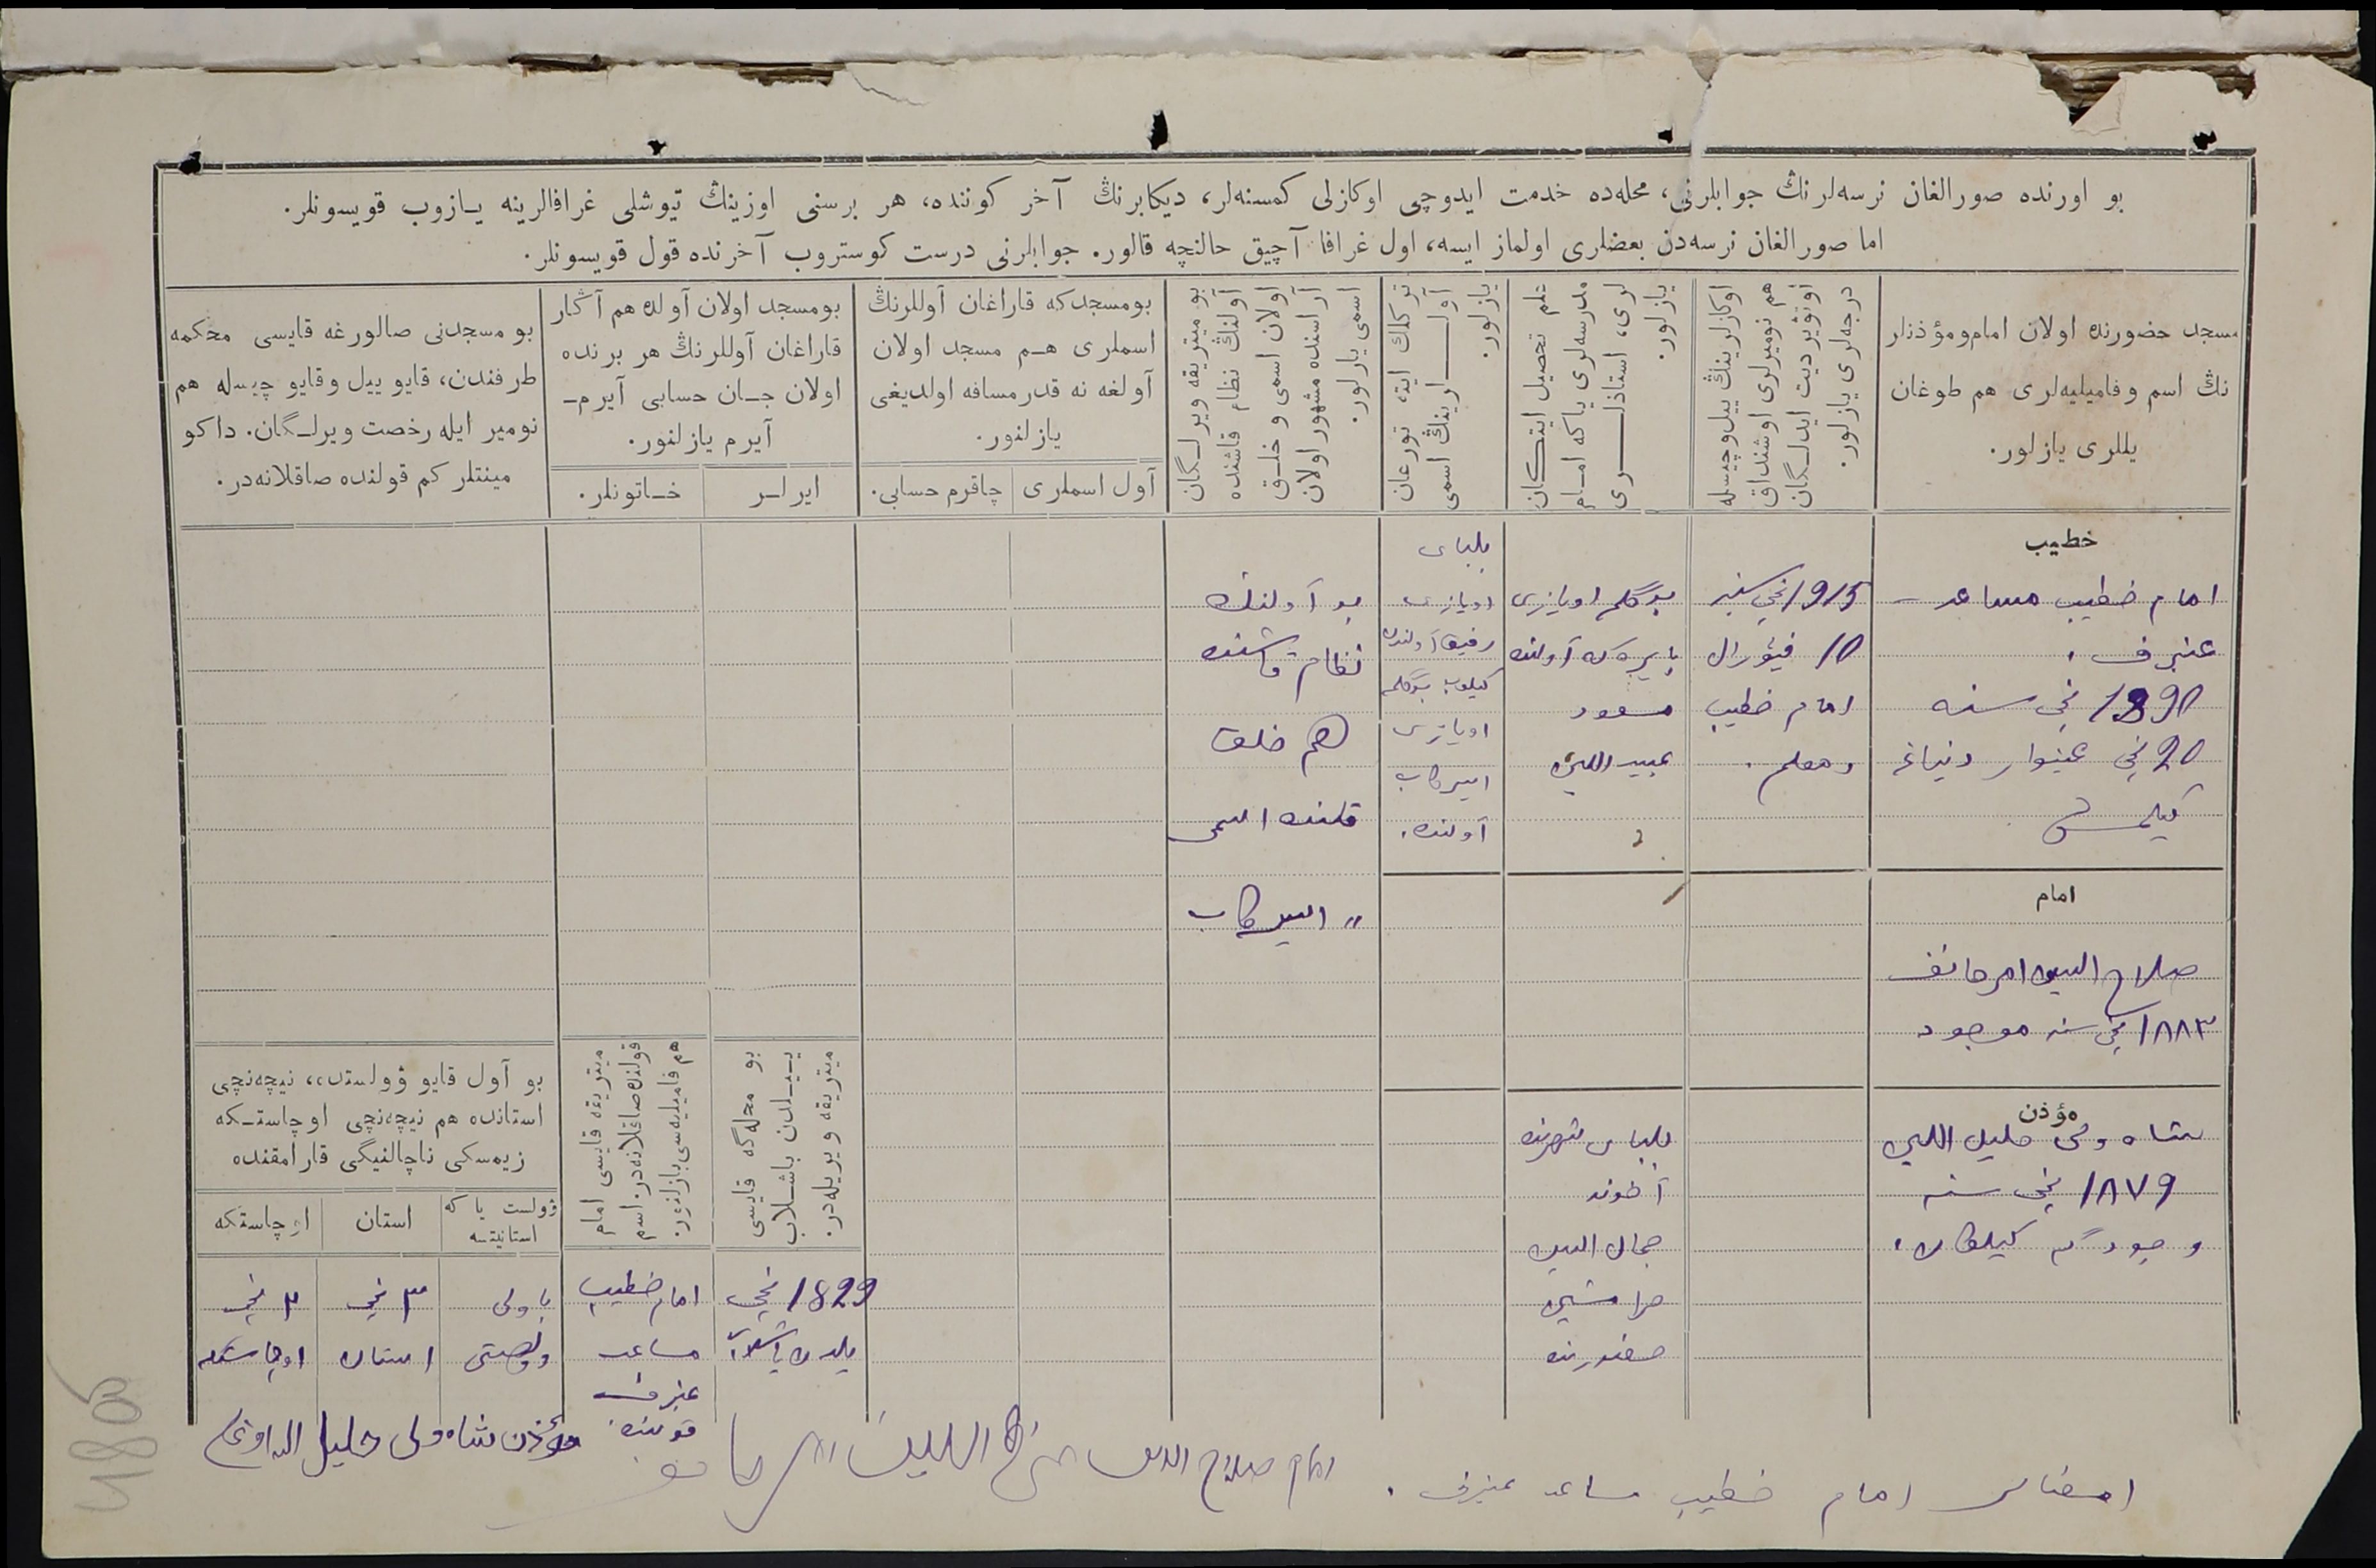 بو اورنده صورالغان نرسه‌لرنڭ جوابلرنی، محله‌ده خدمت ایدوچی اوكازلی كمسنه‌لر، دیكابرنڭ آخر كوننده، هر برسنی اوزینڭ تیوشلی غرافالرینه یازوب قویسونلر.
اما صورالغان نرسه‌دن بعضاری اولماز ایسه، اول غرافا آچیق حالنچه قالور. جوابلرنی درست كوستروب آخرنده قول قویسونلر.
مسجد حضورنده اولان امام ومؤذنلر
نڭ اسم وفامیلیه‌لری هم طوغان
یللری یازلور.
اوكازلرینڭ ییل وچیسله
هم نومیرلری اوشنداق
اونویردیت ایدلگان
درجه‌لری یازلور.
علم تحصیل ایتكان
مدرسه‌لری یاكه امام
لری، استاذلری
یازلور.
تركلك ایته تورغان
آوللرینڭ اسمی
یازلور.
بو میتریقه ویرلگان
آولنڭ نظام قاشنده
اولان اسمی و خلق
آراسنده مشهور اولان
اسمی یازلور.
بومسجدكه قاراغان آوللرنڭ
اسملری هم مسجد اولان
آولغه نه قدر مسافه اولدیغی
یازلنور.
آول اسملری
چاقرم حسابی.
بومسجد اولان آولده هم آڭار
قاراغان آوللرنڭ هر برنده
اولان جان حسابی آیرم-
آیرم یازلنور.
ایرلر
خاتونلر.
بو مسجدنی صالورغه قایسی محكمه
طرفندن، قایو ییل وقایو چیسله هم
نومیر ایله رخصت ویرلگان. داكو
مینتلر كم قولنده صاقلانه‌در.
خطیب
امام خطیب مساعد
1890 نچی سنه
20 نچی غینوار دنیاغه
كیلمش
1915 نچی سنه
10 فیؤرال
امام خطیب
ومعلم.
بوگلمه اویازی
آولنده
مسعود
عبید اللهی
بلبای
اویازی
آولنده
بوگلمه
اویازی
آولنده.
بو آولنڭ
نظام قاشنده
هم خلق
قاشنده اسمی
امام
صلاح الدین امرخانف
۱۸۸۳ نچی سنه موجود
مؤذن
شاه ولی خلیل اللهی
۱۸۷۹ نچی سنه
وجودگه كیلگان.
بلبای شهرنده
آخوند
جمال الدین
حضورنده
بو محله‌گه قایسی
ییلدن باشلاب
میتریقه ویریله‌در.
میتریقه قایسی امام
قولنده صاقلانه‌در. اسم
هم فامیلیه‌سی یازلنور.
بو آول قایو ؤولستده، نیچه‌نچی
استانده هم نیچه‌نچی اوچاستكه
زیمسكی ناچالنیگی قارامقنده
ؤولست یاكه
استانیتسه
استان
اوچاستكه
1829 نچی
یلدن باشلاب
امام خطیب
مساعد
قولنده.
باولی
ولصتی
۳ نچی
استان
۲ نچی
اوچاستكه
امام خطیب مساعد
امام صلاح الدین
مؤذن شاه ولی خلیل